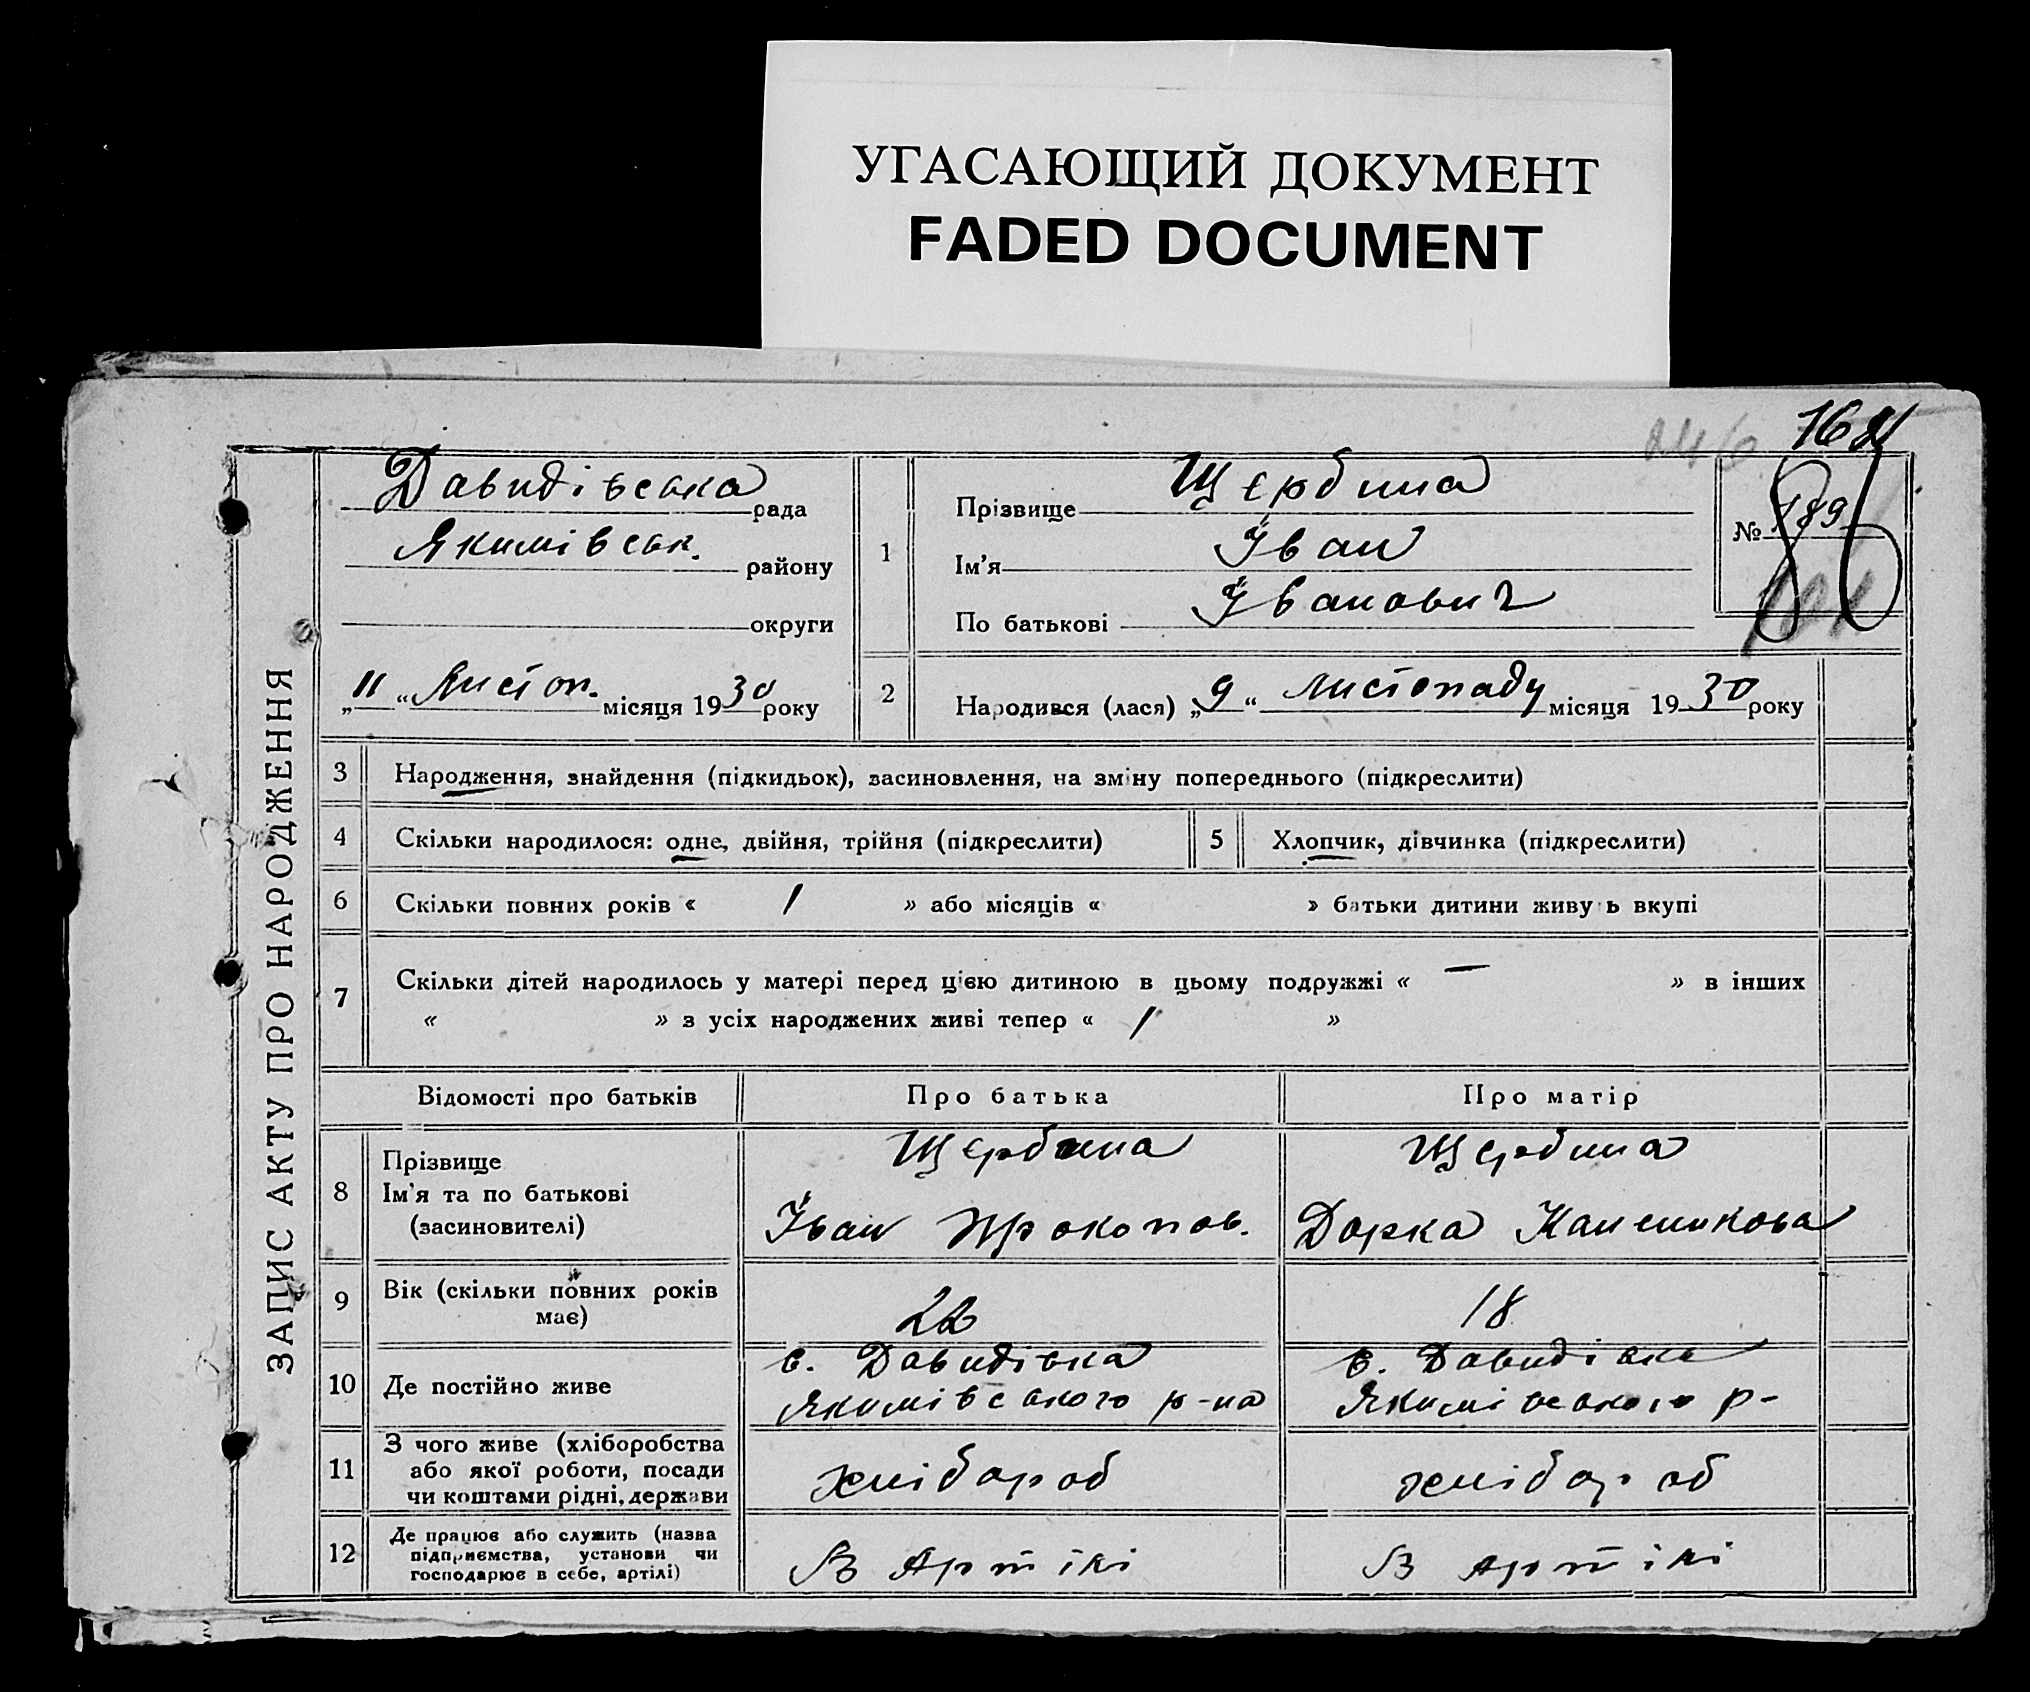 УГАСАЮЩИЙ ДОКУМЕНТ
FADED DOCUMENT
ЗАПИС АКТУ ПРО НАРОДЖЕННЯ
Давидівська рада
Якимівськ. району
округи
„11“ Листоп. місяця 1930 року
1
Прізвище Щербина
Ім'я Іван
По батькові Іванович
№ 189
86
2 Народився (лася) „9“ листопаду місяця 1930 року
3 Народження, знайдення (підкидьок), засиновлення, на зміну попереднього (підкреслити)
4 Скільки народилося: одне, двійня, трійня (підкреслити) 5 Хлопчик, дівчинка (підкреслити)
6 Скільки повних років « 1 » або місяців « » батьки дитини живуть вкупі
7 Скільки дітей народилось у матері перед цією дитиною в цьому подружжі « — » в інших
« » з усіх народжених живі тепер « 1 »
Відомості про батьків Про батька Про матір
8 Прізвище Щербина Щербина
Ім'я та по батькові Іван Прокопов. Дорка
(засиновителі)
9 Вік (скільки повних років має) 22 18
10 Де постійно живе с. Давидівка с. Давидівка
Якимівського р-на Якимівського р-
11 З чого живе (хліборобства
або якої роботи, посади хлібороб хлібороб
чи коштами рідні, держави
12 Де працює або служить (назва
підприємства, установи чи В Артілі В Артілі
господарює в себе, артілі)